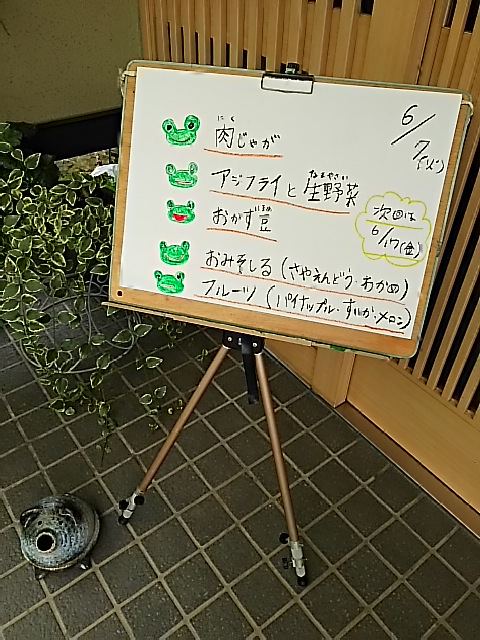 6/7(火)
肉じゃが
にく
アジフライと生野菜
なまやさい
おかず豆
まめ
おみそしる(さやえんどう・わかめ)
フルーツ(パイナップル・すいか・メロン)
次回は
6/17(金)